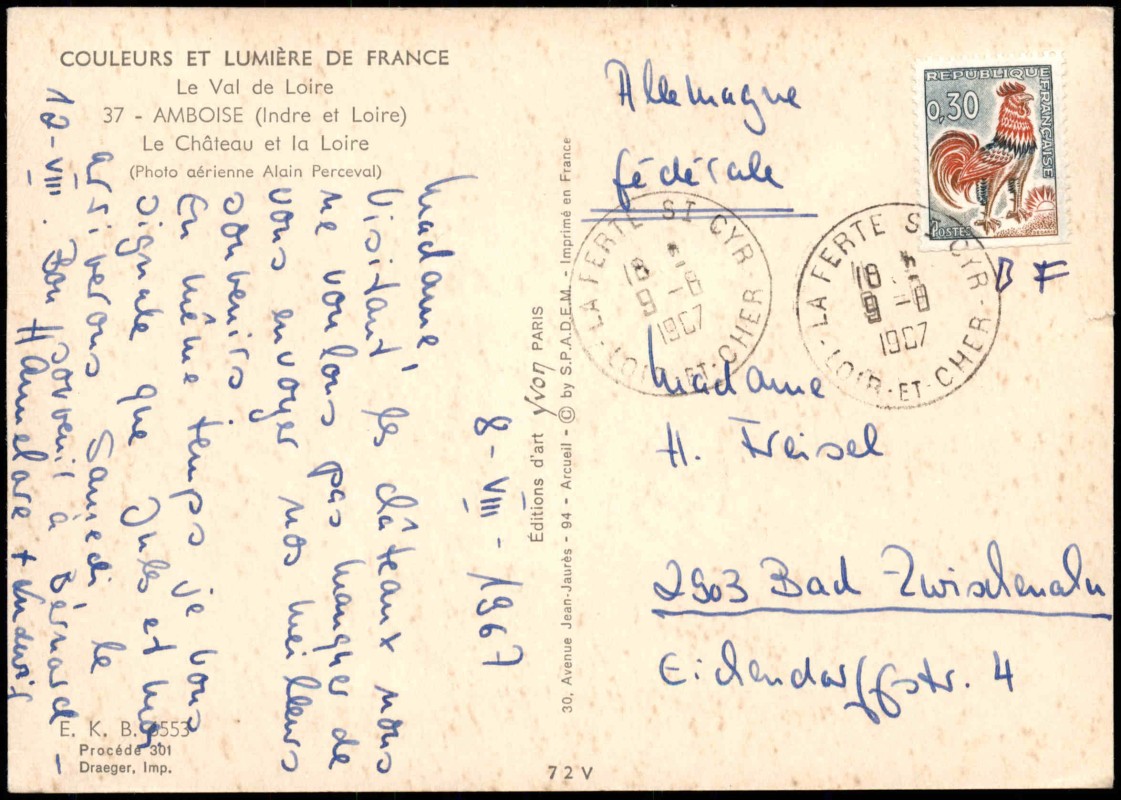 COULEURS ET LUMIÈRE DE FRANCE
Le Val de Loire
37 - AMBOISE (Indre et Loire)
Le Château et la Loire
(Photo aérienne Alain Perceval)
8-VIII-1967
Madame,
Visitant les châteaux nous
ne voulons pas manquer de
vous envoyer nos meilleurs
souvenirs.
En même temps je vous
signale que Jules et moi
arriverons Samedi le
12-VIII. Bon souvenir à Bernard -
Hannelore + Ludwig
E. K. B. 3553
Procédé 301
Draeger, Imp.
72V
Éditions d'art Yvon PARIS
30, Avenue Jean-Jaurès - 94 - Arcueil - © by S.P.A.D.E.M. - Imprimé en France
Allemagne
fédérale
REPUBLIQUE FRANÇAISE
0,30
POSTES
LA FERTE ST CYR
18 *
9 -8
1967
LOIR-ET-CHER
LA FERTE ST CYR
18 *
9 -8
1967
LOIR-ET-CHER
Madame
H. Freisel
2903 Bad Zwischenahn
Eichendorffstr. 4